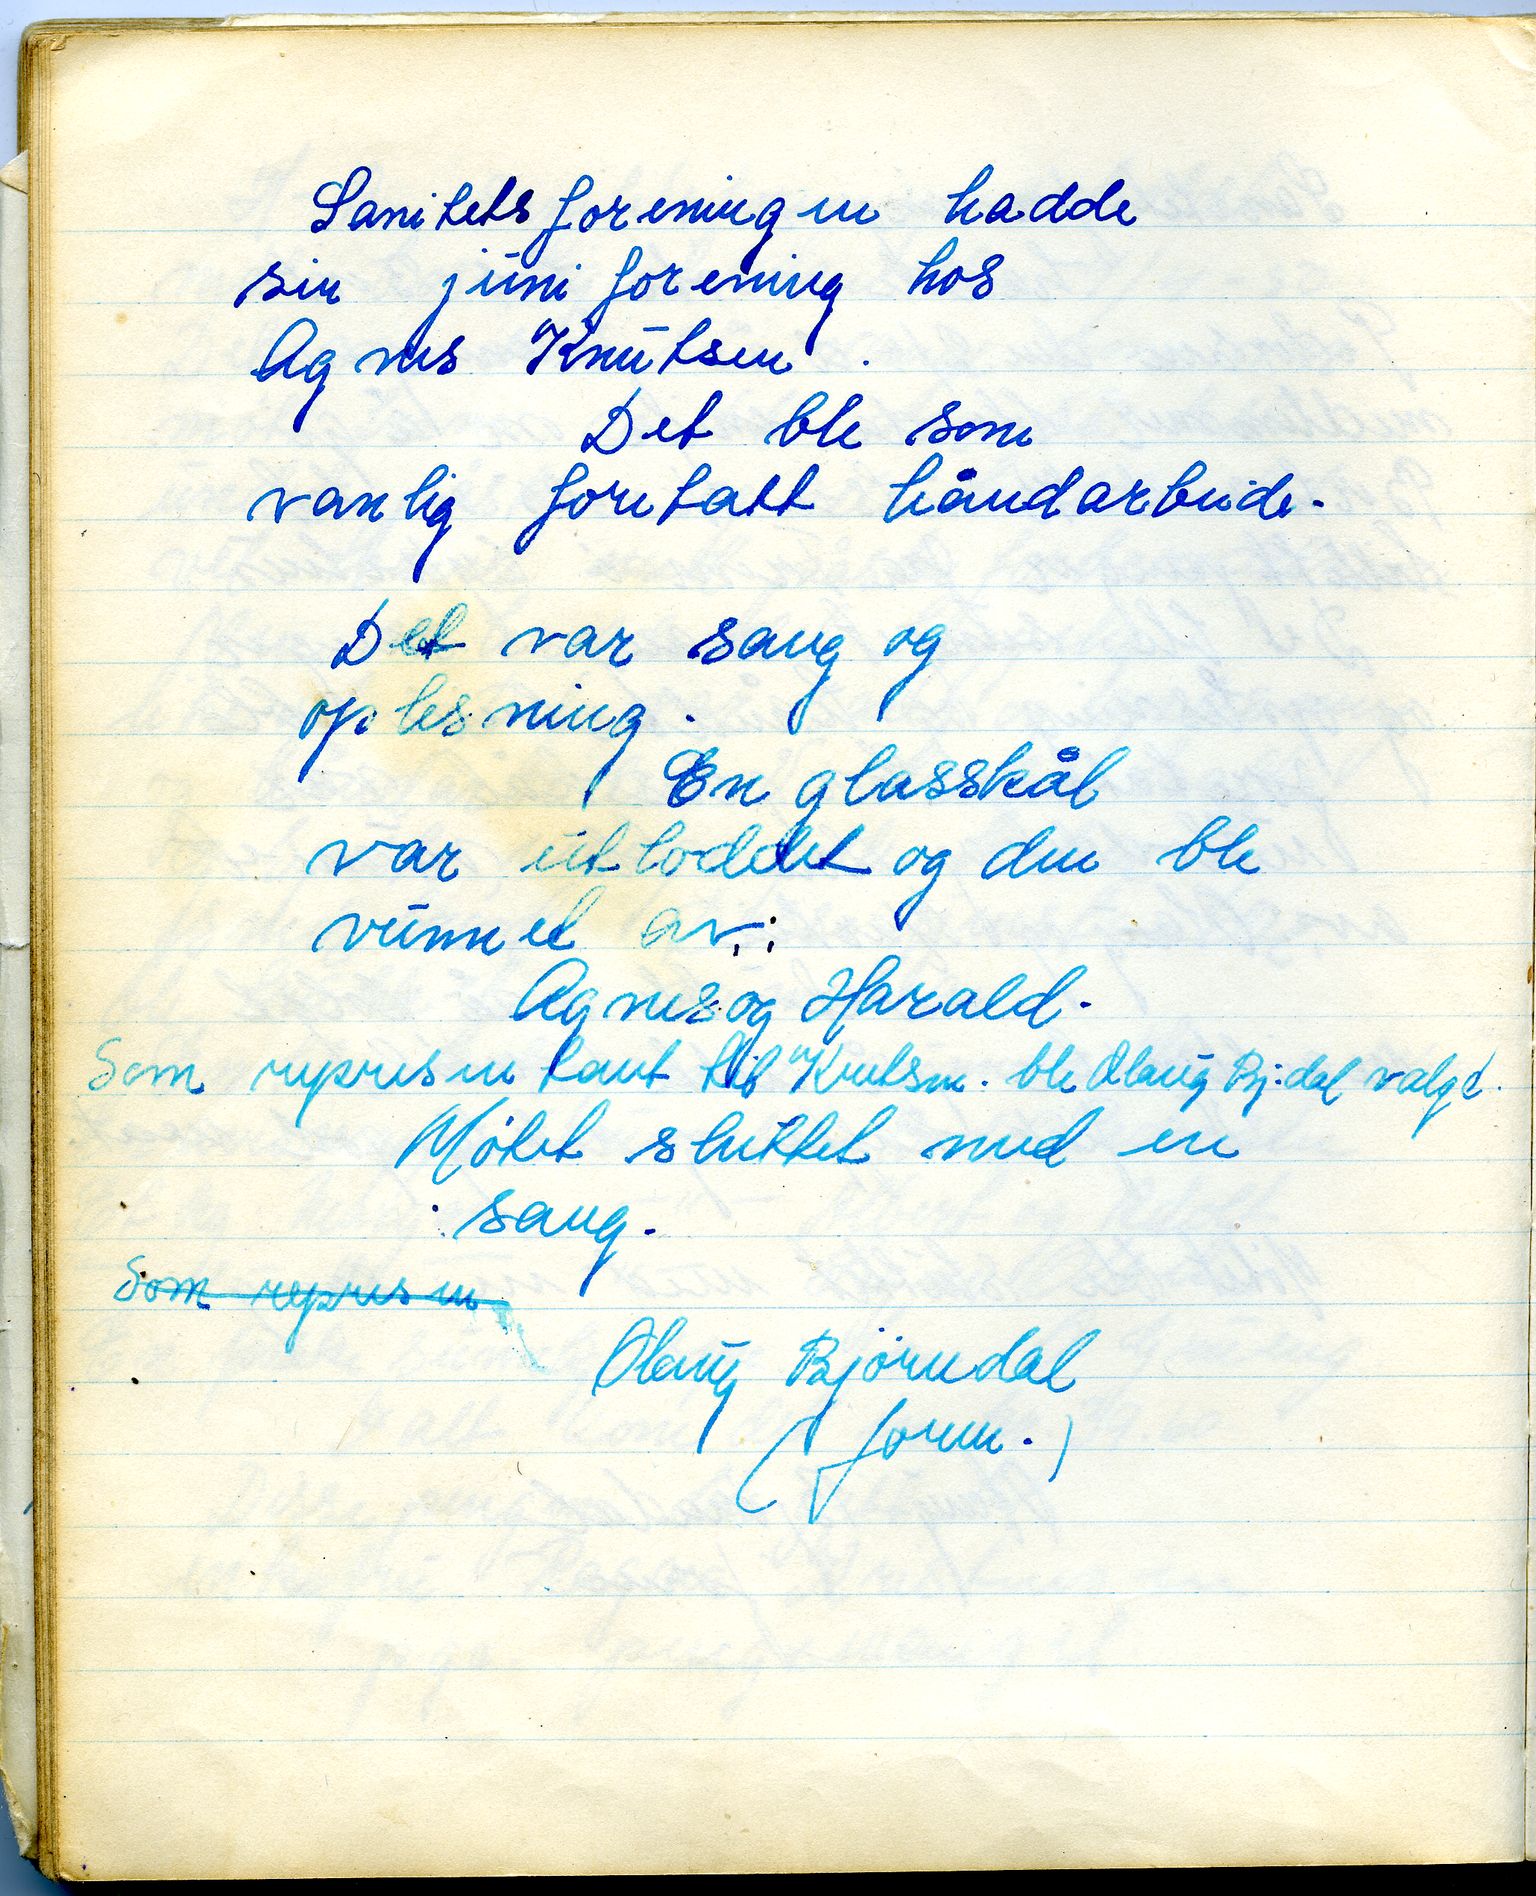 Sanitetsforeningen hadde
sin juni forening hos
Agnes Knutsen.
Det ble som
vanlig foretatt håndarbeide.
Det var sang og
oplesning.
En glasskål
var utloddet og den ble
vunnet av:
Agnes og Harald.
Som representant til Kretsm. ble Olaug Bj.dal valgt.
Møtet sluttet med en
sang.
Som represen
Olaug Bjørndal
(form.)